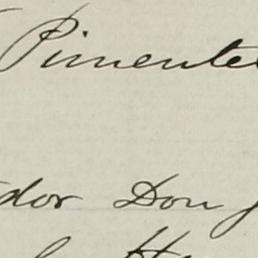 Pimente
dor Don